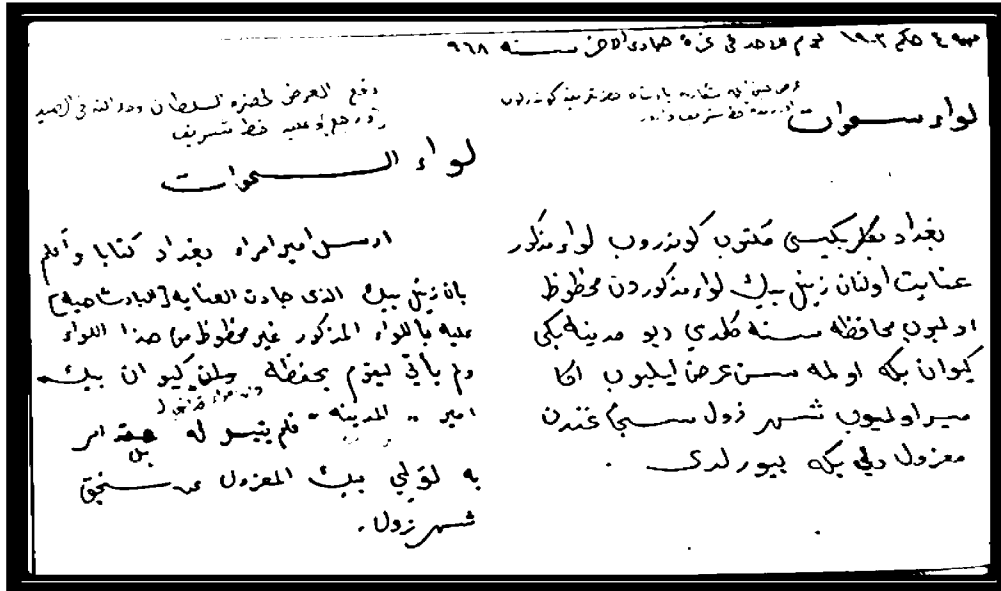 مهمه ٤ حكم ١٩٠٢ يوم الاحد في غرة جمادى الاخر سنة ٩٦٨
پادشاه حضرتلرينه كوندرلوب
خط شريف
لواء سموات
بغداد بكلربكيسى مكتوب كوندروب لواء مذكور
عنايت اولنان زينل بيك لواء مذكوردن محظوظ
اولميوب محافظه سنه كلمدي ديو مدينه بكى
كيوان بكه اولمه سن عرض ايليوب اكا
ميسر اولميوب شهر زول سنجاغندن
معزول ولي بكه بيورلدى .
رفع العرض لحضرة السلطان
وعليه خط شريف
لواء السموات
ارسل امير امراء بغداد كتابا وأعلم
بان زينل بيك الذى جادت العنايه [البادشاهيه]
عليه باللواء المذكور غير محظوظ من هذا اللواء
ولم يأتي ليقوم بحفظه كيوان بيك
امير المدينه فلم يتيسر له بل امر
به لولي بيك المعزول عن سنجق
شهر زول .